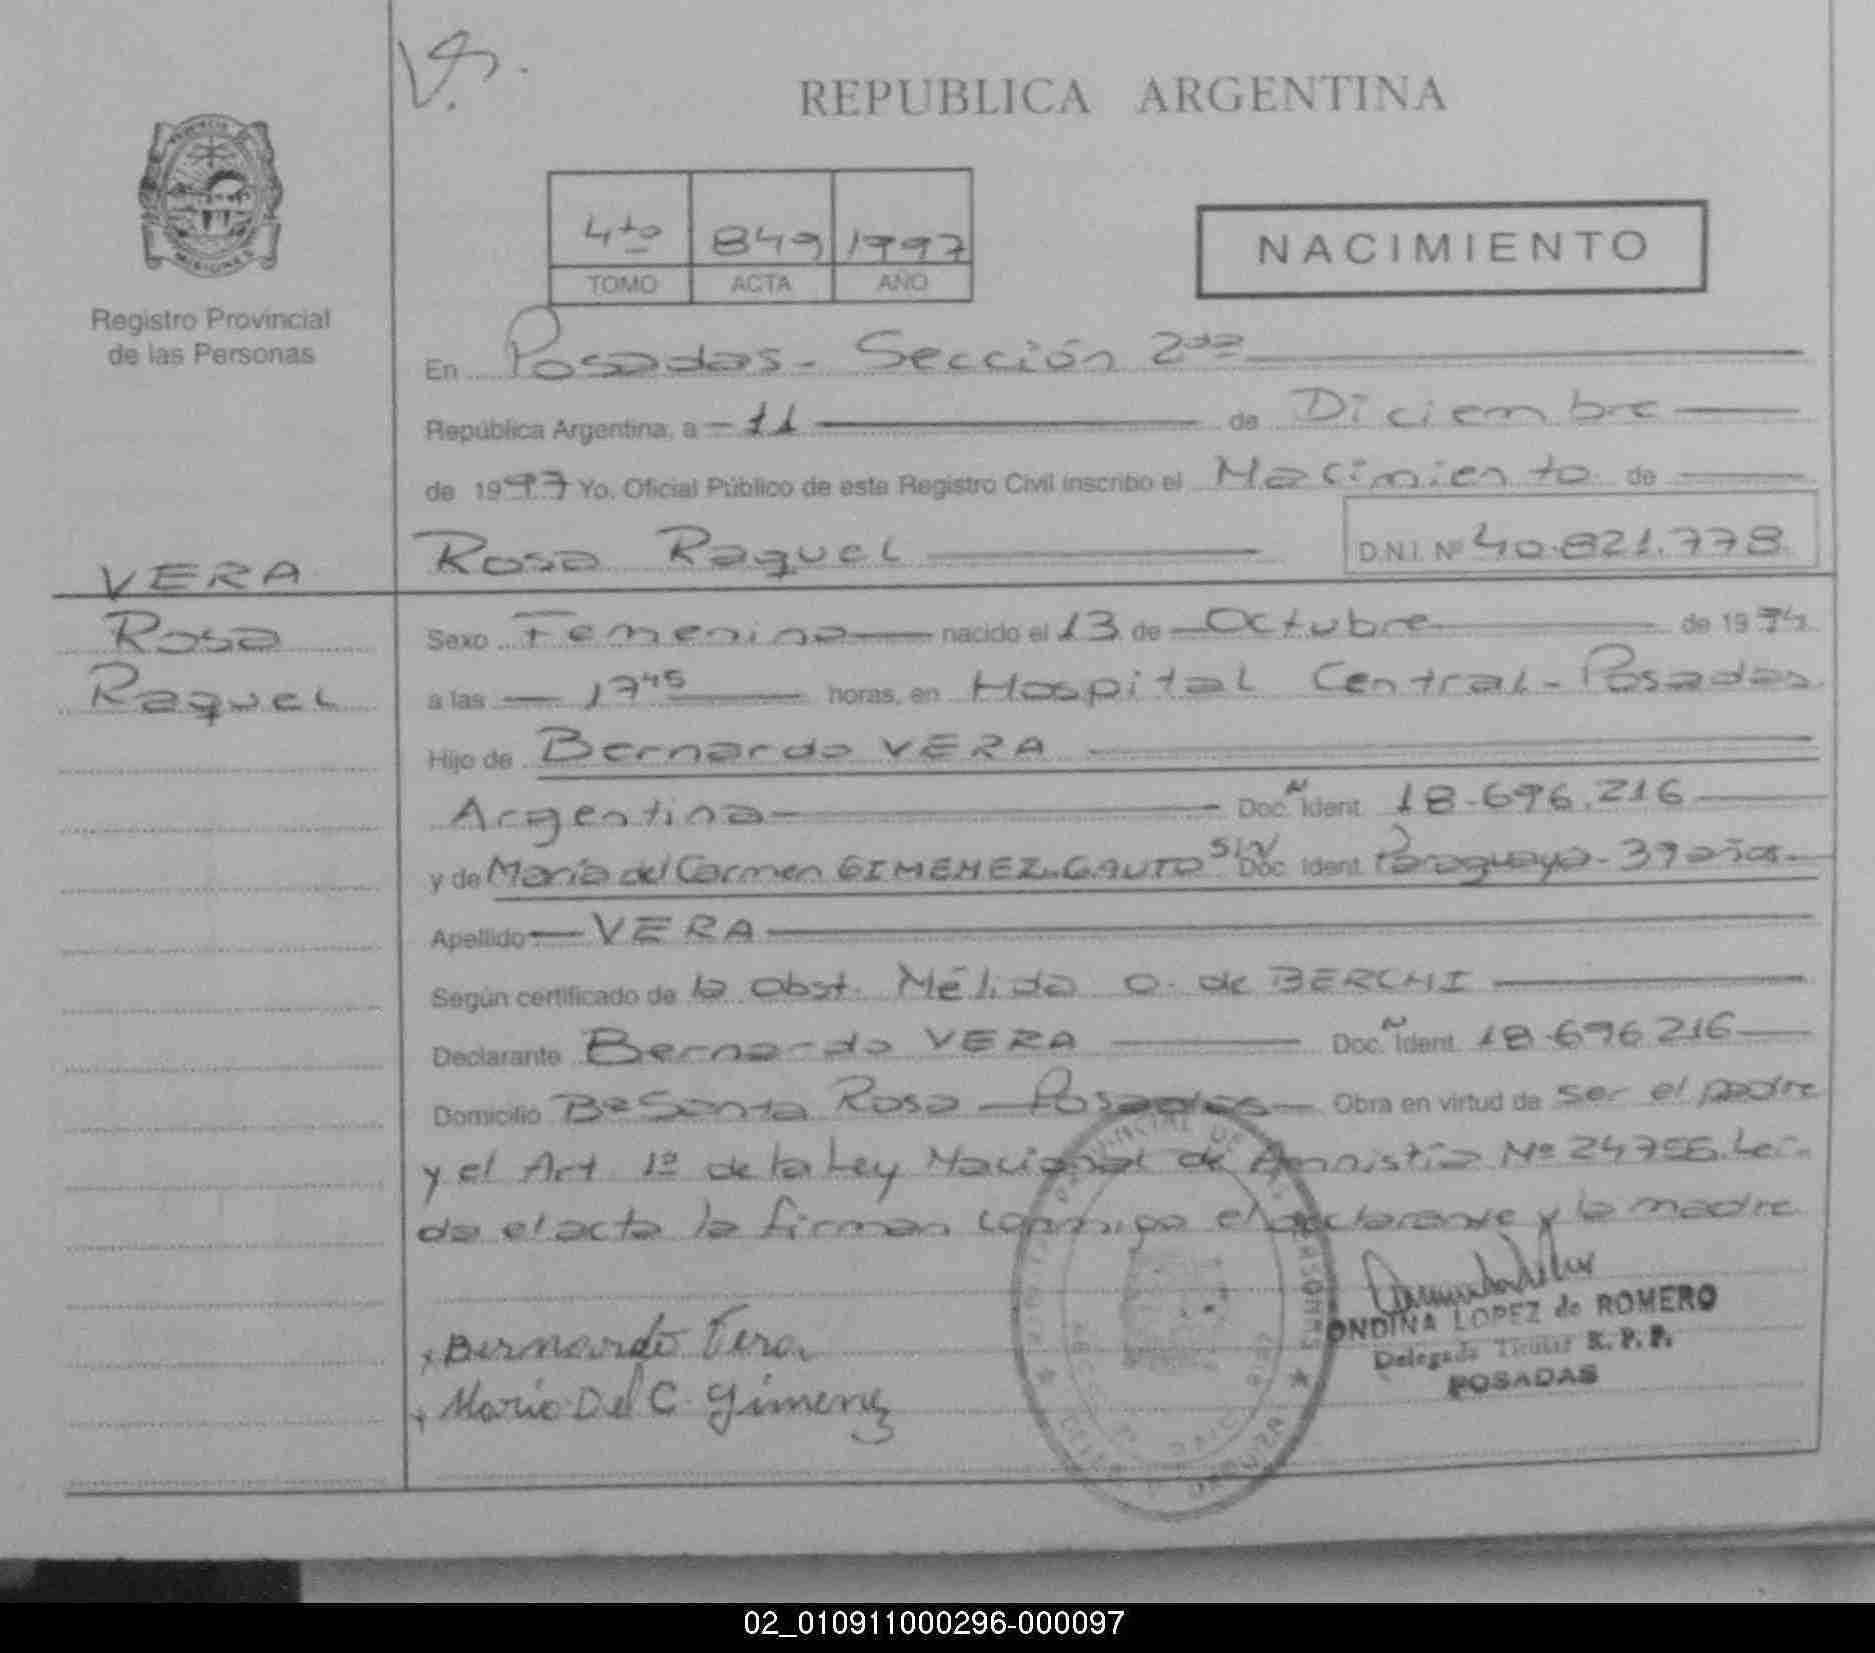 REPUBLICA ARGENTINA
PROVINCIA DE
MISIONES
Registro Provincial
de las Personas
4to 849 1997
TOMO ACTA AÑO
NACIMIENTO
En Posadas - Sección 2da
República Argentina, a 11 de Diciembre
de 1997 Yo, Oficial Público de este Registro Civil inscribo el Nacimiento de
Rosa Raquel D.N.I. Nº 40.821.778
VERA
Rosa
Raquel
Sexo Femenino nacido el 13 de Octubre de 19
a las 17 45 horas, en Hospital Central - Posadas
Hijo de Bernardo VERA
Argentina Doc. Ident. 18.696.216
y de María del Carmen GIMENEZ GAUTO SIN Doc. Ident. Paraguaya - 39 años
Apellido VERA
Según certificado de la Obst. Nélida O. de BERCHI
Declarante Bernardo VERA Doc. Ident. 18.696.216
Domicilio Bº Santa Rosa - Posadas Obra en virtud de ser el padre
y el Art. 1º de la Ley Nacional de Amnistía Nº 24755. Leí-
da el acta la firman conmigo el declarante y la madre
Bernardo Vera
María Del C. Gimenez
ONDINA LOPEZ de ROMERO
Delegada Titular R. P. P.
POSADAS
02_010911000296-000097